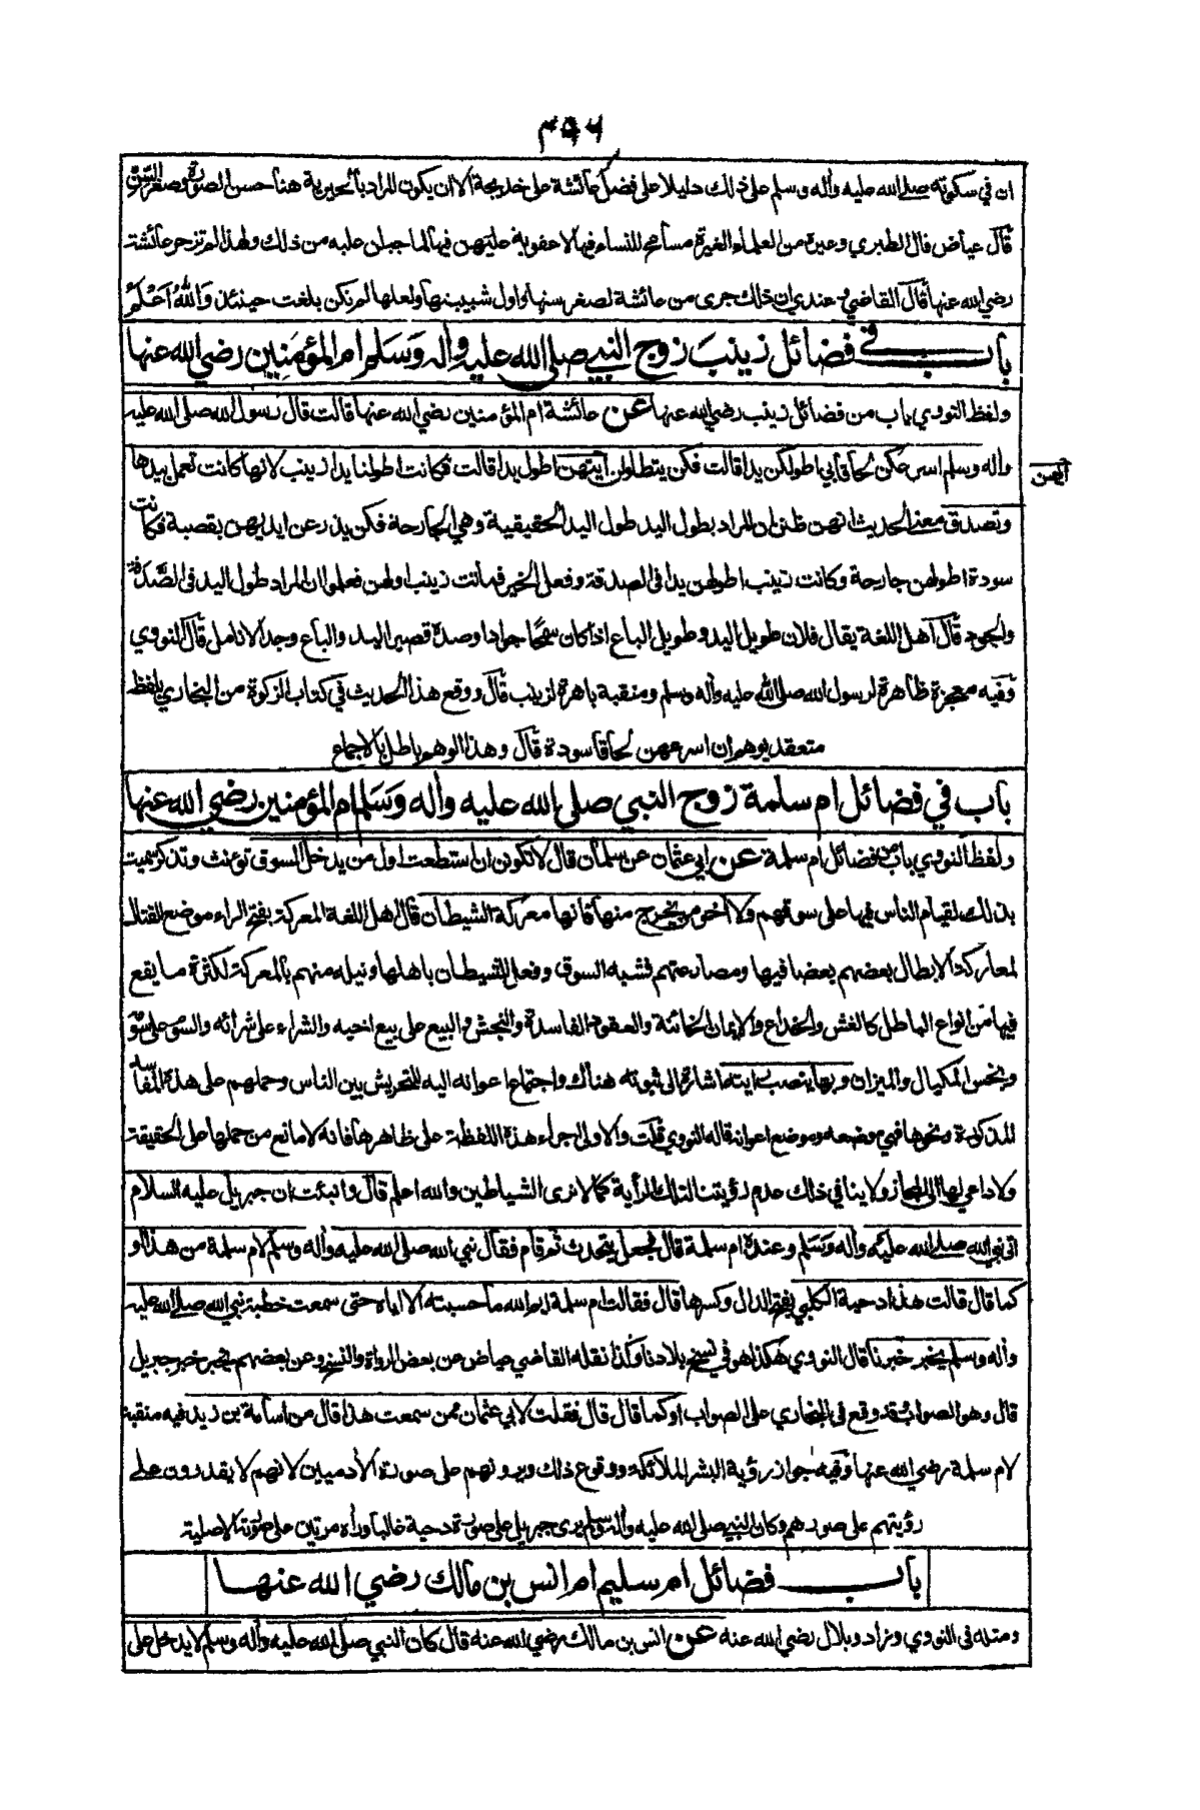 ان في سكوته صلى الله عليه وأله وسلم على ذلك دليلا على فضل عائشة على خديجة الا ان يكون المراد بالخيرية هنا حسن الصورة وصغر السن
قال عياض قال الطبري وغيره من العلماء الغيرة مسامح للنساء فيها لا عقوبة عليهن فيها لما جبلن عليه من ذلك ولهذا لم تزجر عائشة
رضي الله عنها قال القاضي وعندي ان ذلك جرى من عائشة لصغر سنها واول شبيبتها ولعلها لم تكن بلغت حينئذ والله أعلم
باب في فضائل زينب زوج النبي صلى الله عليه وأله وسلم ام المؤمنين رضي الله عنها
ولفظ النووي باب من فضائل زينب رضي الله عنها عن عائشة ام المؤمنين رضي الله عنها قالت قال رسول الله صلى الله عليه
وأله وسلم اسرعكن لحاقا بي اطولكن يدا قالت فكن يتطاولن ايتهن اطول يدا قالت فكانت اطولنا يدا زينب لانها كانت تعمل بيدها
ايهن
وتصدق معنى الحديث انهن ظنن ان المراد بطول اليد طول اليد الحقيقية وهي الجارحة فكن يذرعن ايديهن بقصبة فكانت
سودة اطولهن جارحة وكانت زينب اطولهن يدا في الصدقة وفعل الخير فماتت زينب اولهن فعلموا ان المراد طول اليد في الصدقة
والجود قال اهل اللغة يقال فلان طويل اليد وطويل الباع اذا كان سمحا جوادا وضده قصير اليد والباع وجد الانامل قال النووي
وفيه معجزة ظاهرة لرسول الله صلى الله عليه وأله وسلم ومنقبة باهرة لزينب قال ووقع هذا الحديث في كتاب الزكوة من البخاري بلفظ
متعقد يوهم ان اسرعهن لحاقا سودة قال وهذا الوهم باطل بالاجماع
باب في فضائل ام سلمة زوج النبي صلى الله عليه وأله وسلم ام المؤمنين رضي الله عنها
ولفظ النووي باب من فضائل ام سلمة عن ابي عثمان عن سلمان قال لا تكونن ان استطعت اول من يدخل السوق تؤنث وتذكر سميت
بذلك لقيام الناس فيها على سوقهم ولا أخر من يخرج منها فانها معركة الشيطان قال اهل اللغة المعركة بفتح الراء موضع القتال
لمعاركة الابطال بعضهم بعضا فيها ومصارعتهم فشبه السوق وفعل الشيطان باهلها ونيله منهم بالمعركة لكثرة ما يقع
فيها من انواع الباطل كالغش والخداع والايمان الخائنة والعقود الفاسدة والنجش والبيع على بيع اخيه والشراء على شرائه والسوم على سومه
وبخس المكيال والميزان وبها ينصب رايته اشارة الى ثبوته هناك واجتماع اعوانه اليه للتحريش بين الناس وحملهم على هذه المفاسد
المذكورة ونحوها فهي موضعه وموضع اعوانه قاله النووي قلت والاولى اجراء هذه اللفظة على ظاهرها فانه لا مانع من حملها على الحقيقة
ولا داعي لها الى المجاز ولا ينافي ذلك عدم رؤيتنا لتلك الرأية كما لا نرى الشياطين والله اعلم قال وانبئت ان جبريل عليه السلام
اتى نبي الله صلى الله عليه وأله وسلم وعنده ام سلمة قال فجعل يتحدث ثم قام فقال نبي الله صلى الله عليه وأله وسلم لام سلمة من هذا او
كما قال قالت هذا دحية الكلبي بفتح الدال وكسرها قال فقالت ام سلمة ايم الله ما حسبته الا اياه حتى سمعت خطبة نبي الله صلى الله عليه
وأله وسلم يخبر خبرنا قال النووي هكذا هو في نسخ بلادنا وكذا نقله القاضي عياض عن بعض الرواة والنسخ وعن بعضهم يخبر خبر جبريل
قال وهو الصواب وقد وقع في البخاري على الصواب او كما قال قال فقلت لابي عثمان ممن سمعت هذا قال من اسامة بن زيد فيه منقبة
لام سلمة رضي الله عنها وفيه جواز رؤية البشر الملائكة ووقوع ذلك ويرونهم على صورة الأدميين لانهم لا يقدرون على
رؤيتهم على صورهم وكان النبي صلى الله عليه وأله وسلم يرى جبريل على صورة دحية غالبا ورأه مرتين على صورته الاصلية
باب فضائل ام سليم ام انس بن مالك رضي الله عنها
ومثله في النووي وزاد وبلال رضي الله عنه عن انس بن مالك رضي الله عنه قال كان النبي صلى الله عليه وأله وسلم لا يدخل على